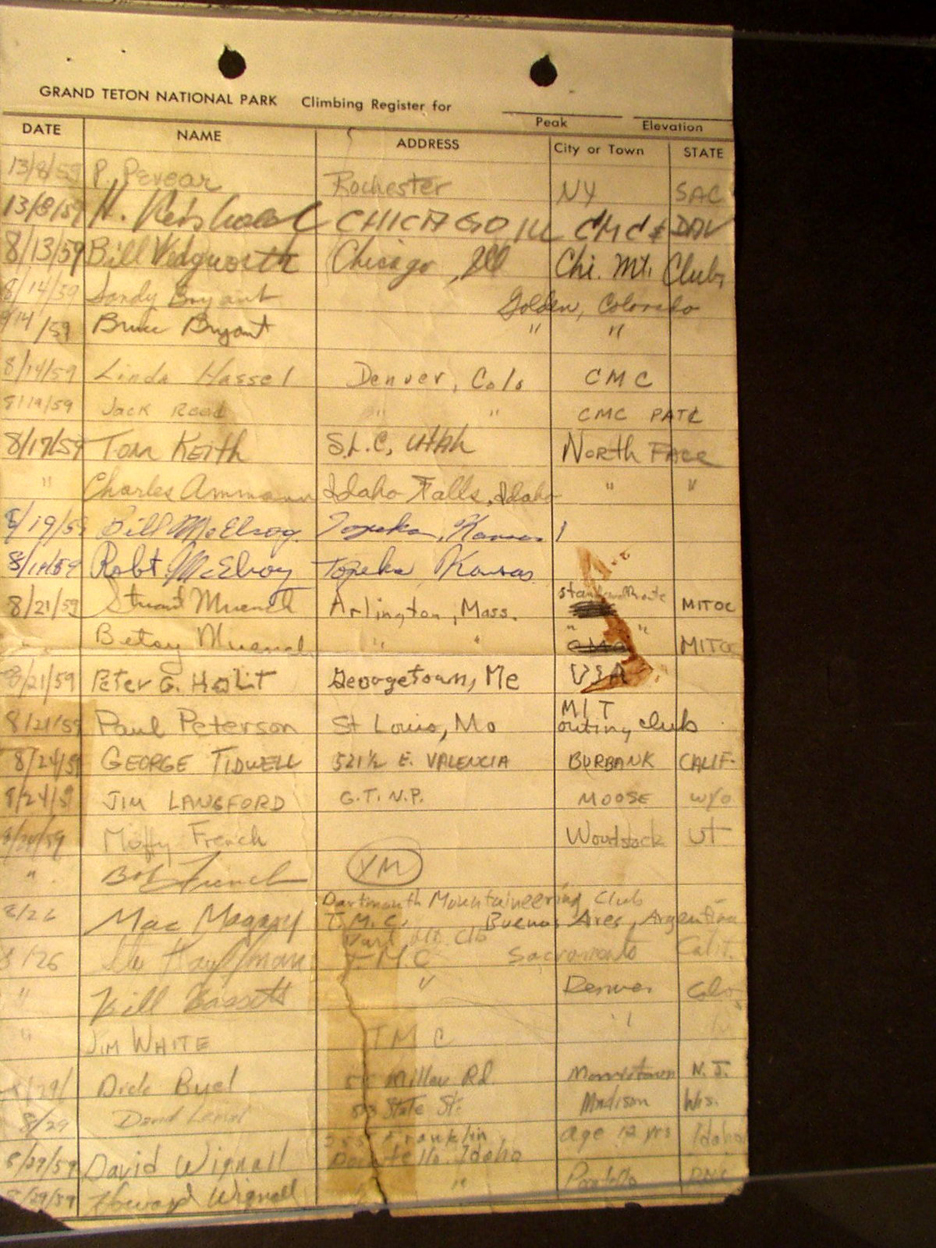 GRAND TETON NATIONAL PARK Climbing Register for
Peak Elevation
DATE NAME ADDRESS City or Town STATE
13/8/59 P. Pevear Rochester NY SAC
13/8/59 H. CHICAGO ILL CMC & DAV
8/13/59 Bill Vidgworth Chicago, Ill Chi. Mt. Club
8/14/59 Sandy Bryant Golden, Colorado
8/14/59 Bruce Bryant " "
8/14/59 Linda Hassel Denver, Colo CMC
8/14/59 Jack Reed " " CMC PATC
8/17/59 Tom Keith S.L.C, Utah North Face
" Charles Ammann Idaho Falls, Idaho " "
8/19/59 Bill McElroy Topeka, Kansas
8/19/59 Robt. McElroy Topeka, Kansas
8/21/59 Stuart Muench Arlington, Mass. MITOC
" Betsy Muench " " " " MITOC
8/21/59 Peter G. Arlington Georgetown, Me USA
8/21/59 Paul Peterson St Louis, Mo MIT outing club
8/24/59 GEORGE TIDWELL 521½ E. VALENCIA BURBANK CALIF.
8/24/59 JIM LANGFORD G.T.N.P. MOOSE WYO
8/24/59 Muffy French Woodstock Vt
" Bob French VM
Dartmouth Mountaineering Club
8/26 Mac T.M.C. Buenos Aires, Argentina
8/26 Kauffman T.M.C Sacramento Calif.
" Bill Bassett " Denver Colo
" JIM WHITE T M C "
8/29/ Dick Buel Millou Rd. Morristown N.J.
8/29 David State St. Madison Wis.
255 Franklin age 12 yrs Idaho
8/29/59 David Wignall Pocatello, Idaho
8/29/59 Howard Wignall "